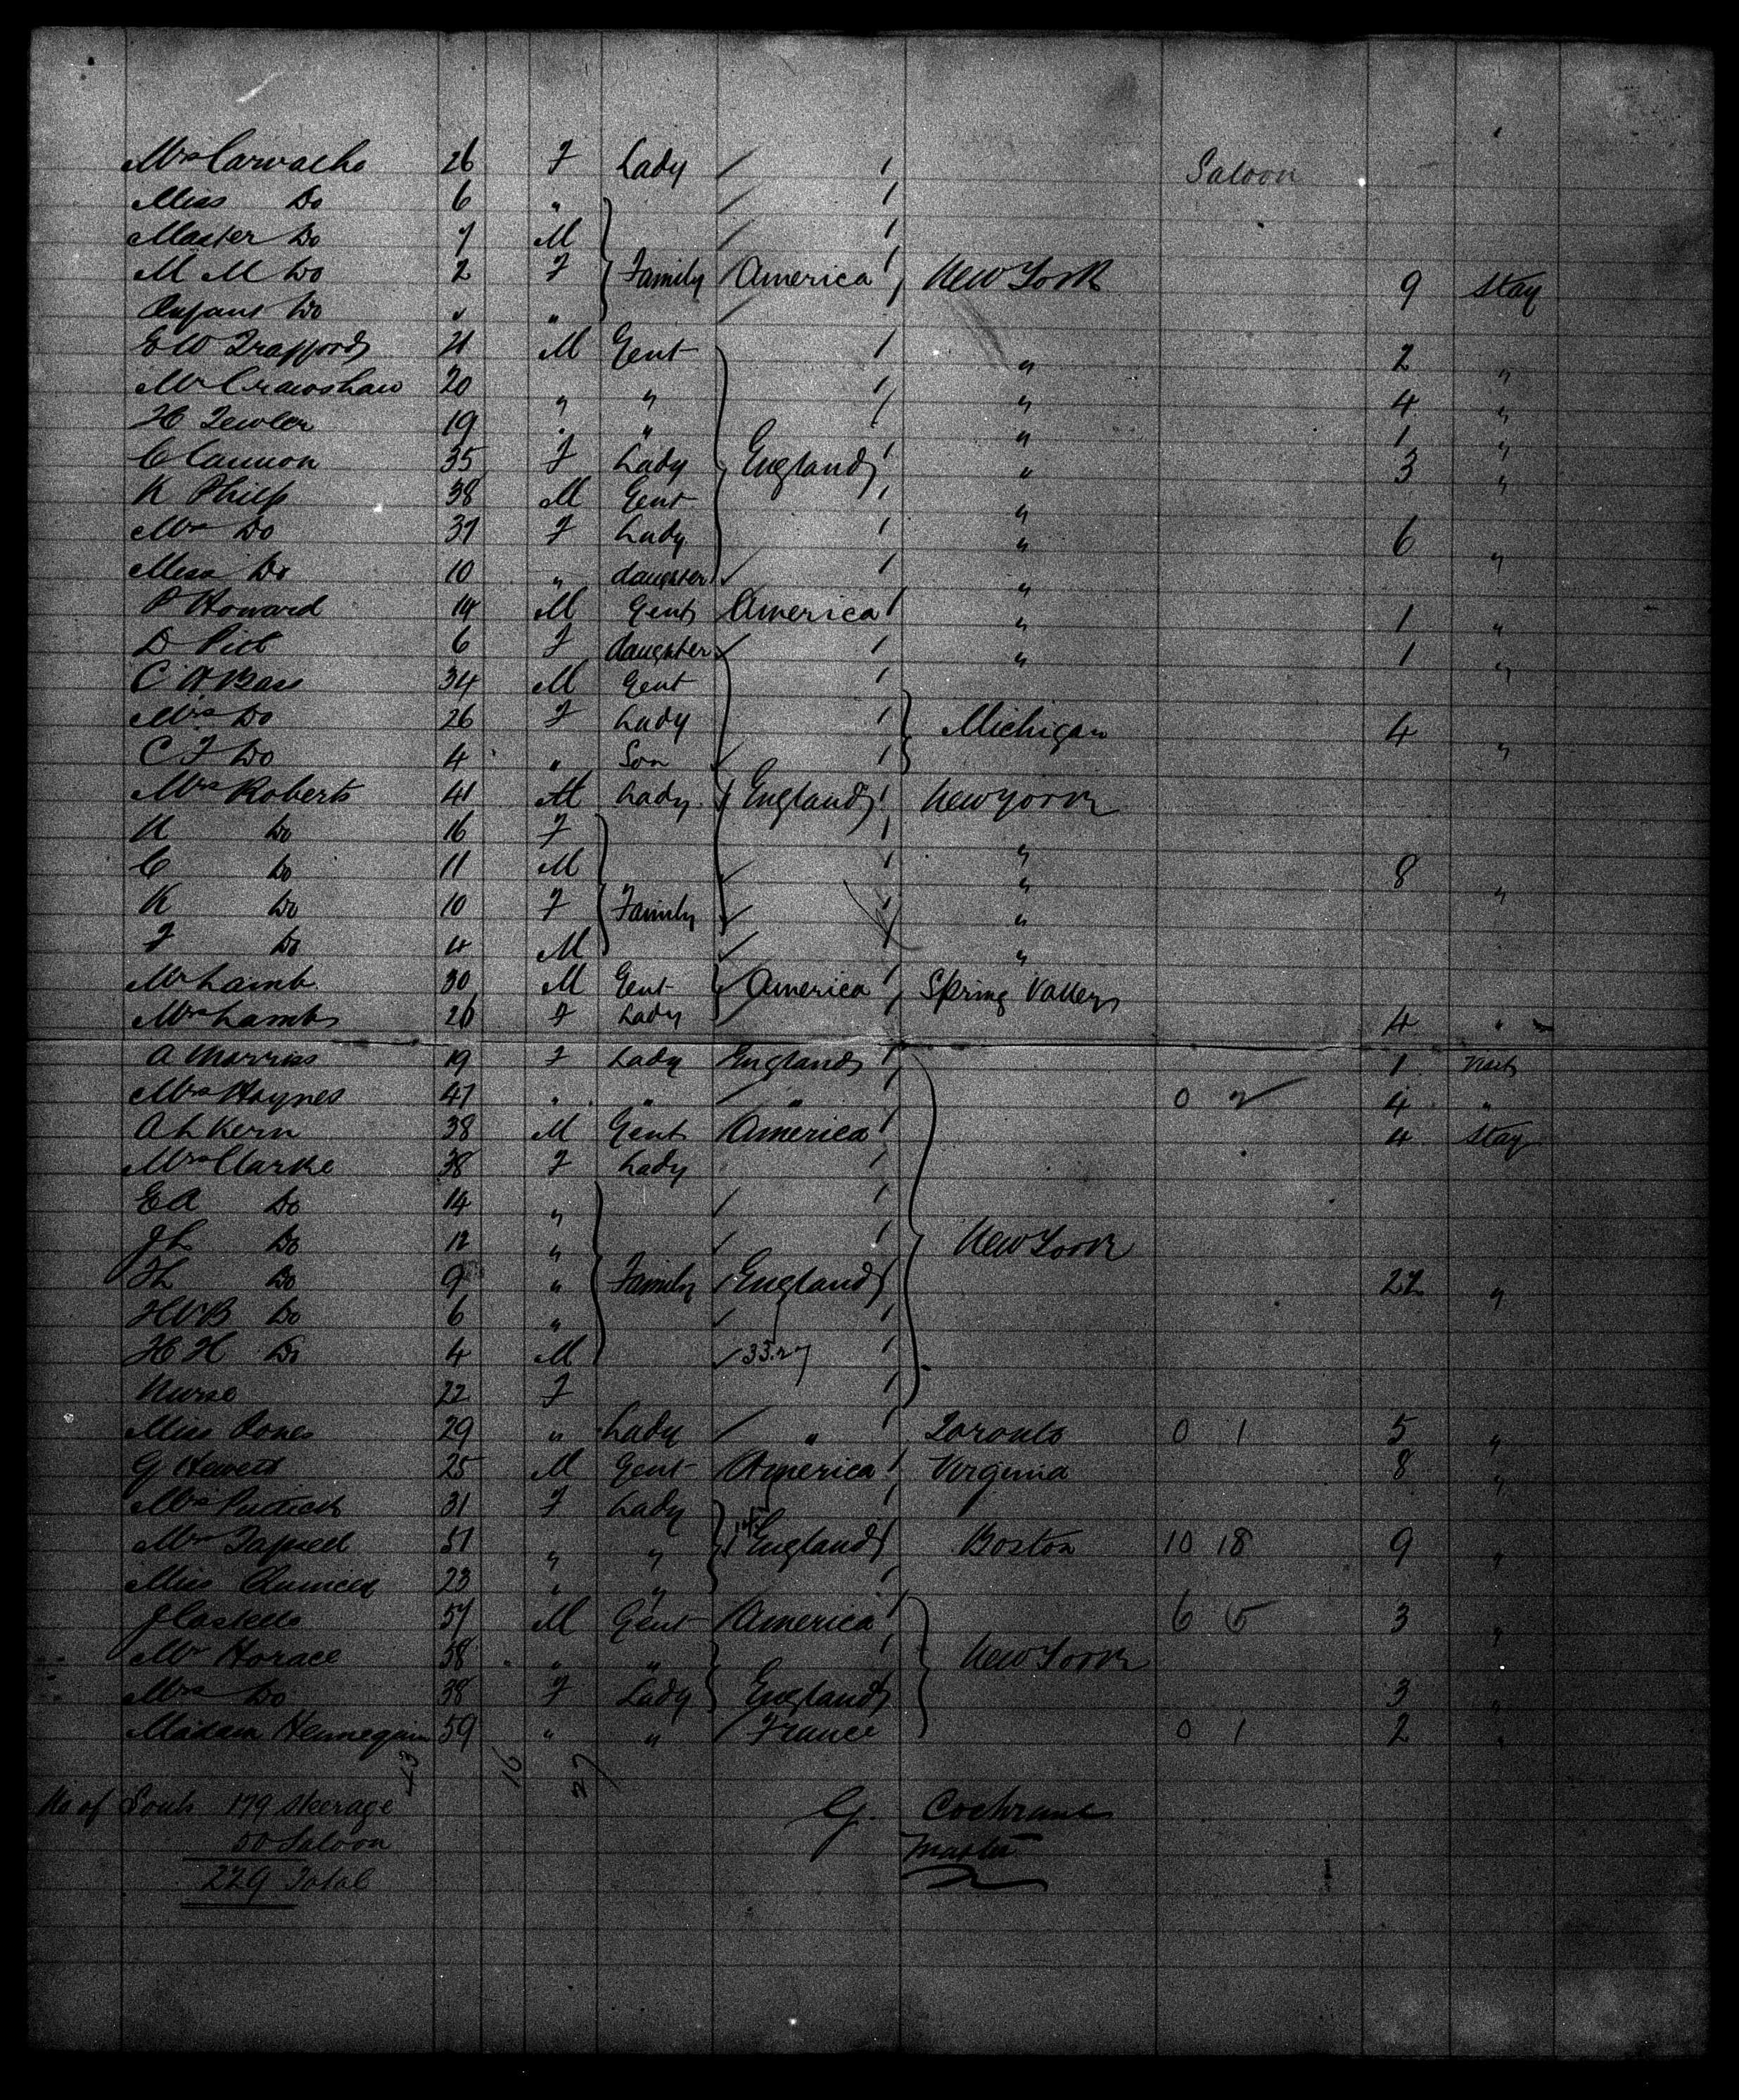 Mrs Carvacho 26 F Lady Saloon
Miss Do 6 "
Master Do 7 M
M M Do 2 F Family America New York 9 Stay
Infant Do " "
E W Trafford 21 M Gent " 2 "
Mr Crawshaw 20 " " " 4 "
H 19 " " " 1 "
C Cannon 35 F Lady England " 3 "
K Philp 38 M Gent "
Mrs Do 37 F Lady " 6 "
Miss Do 10 " daughter "
P Howard 14 M Gent America " 1 "
D 6 F daughter " 1 "
C A Bass 34 M Gent
Mrs Do 26 F Lady Michigan 4 "
C F Do 4 " Son
Mrs Roberts 41 M Lady England New York
K Do 16 F "
C Do 11 M " 8 "
K Do 10 F Family "
F Do 4 M "
Mr Lamb 30 M Gent America Spring Valley
Mrs Lamb 26 F Lady 4 "
A Morriss 19 F Lady England 1 Visit
Mrs Haynes 47 " " " 0 2 4 "
A L Kern 38 M Gent America 4 Stay
Mrs Clarke 38 F Lady
E A Do 14 "
J L Do 12 " New York
F L Do 9 " Family England 22 "
H V B Do 6 "
H H Do 4 M 33.27
Nurse 22 F
Miss Jones 29 " Lady " Toronto 0 1 5 "
G Hewett 25 M Gent America Virginia 8 "
Mrs 31 F Lady
Mrs 51 " " England Boston 10 18 9 "
Miss 23 " "
J Castello 57 M Gent America 6 5 3 "
Mr Horace 58 " " New York
Mrs Do 38 F Lady England 3 "
Madam Hennequin 59 " " France 0 1 2 "
43 16 27
No of Souls 179 Steerage G. Cochrane
50 Saloon Master
229 Total